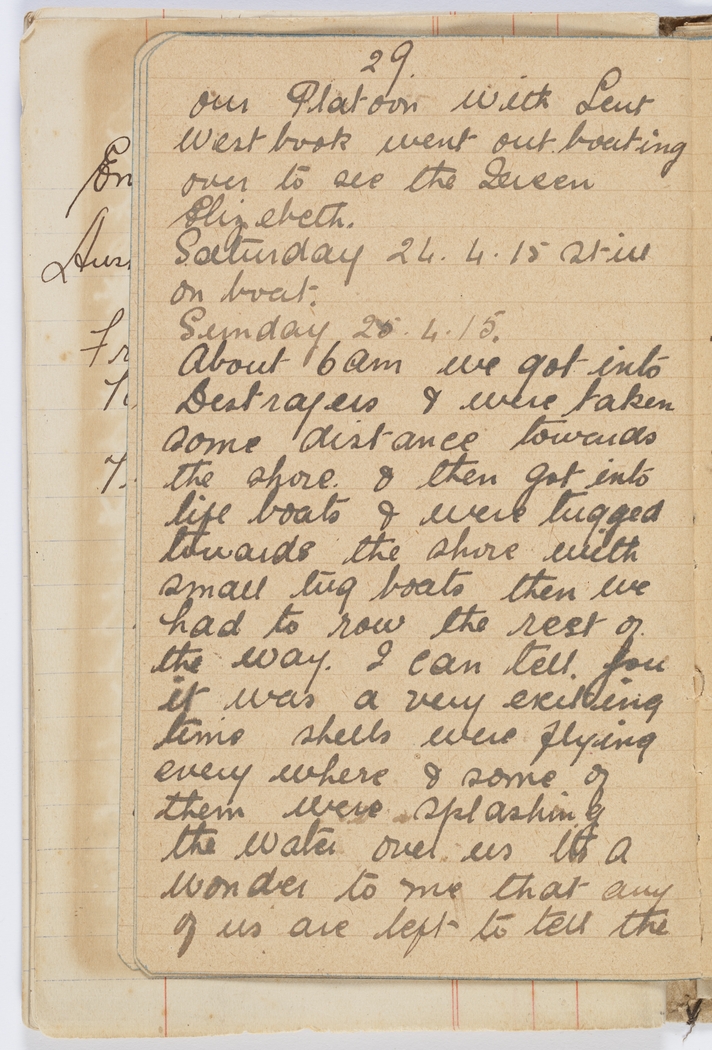 29
our Platoon with Leut
Westbook went out boating
over to see the Queen
Elizebeth.
Saturday 24. 4. 15 still
on boat.
Sunday 25. 4. 15.
About 6am we got into
Destroyers & were taken
some distance towards
the shore. & then got into
life boats & were tugged
towards the shore with
small tug boats then we
had to row the rest of
the way. I can tell you
it was a very exciting
time shells were flying
every where & some of
them were splashing
the water over us Its a
wonder to me that any
of us are left to tell the